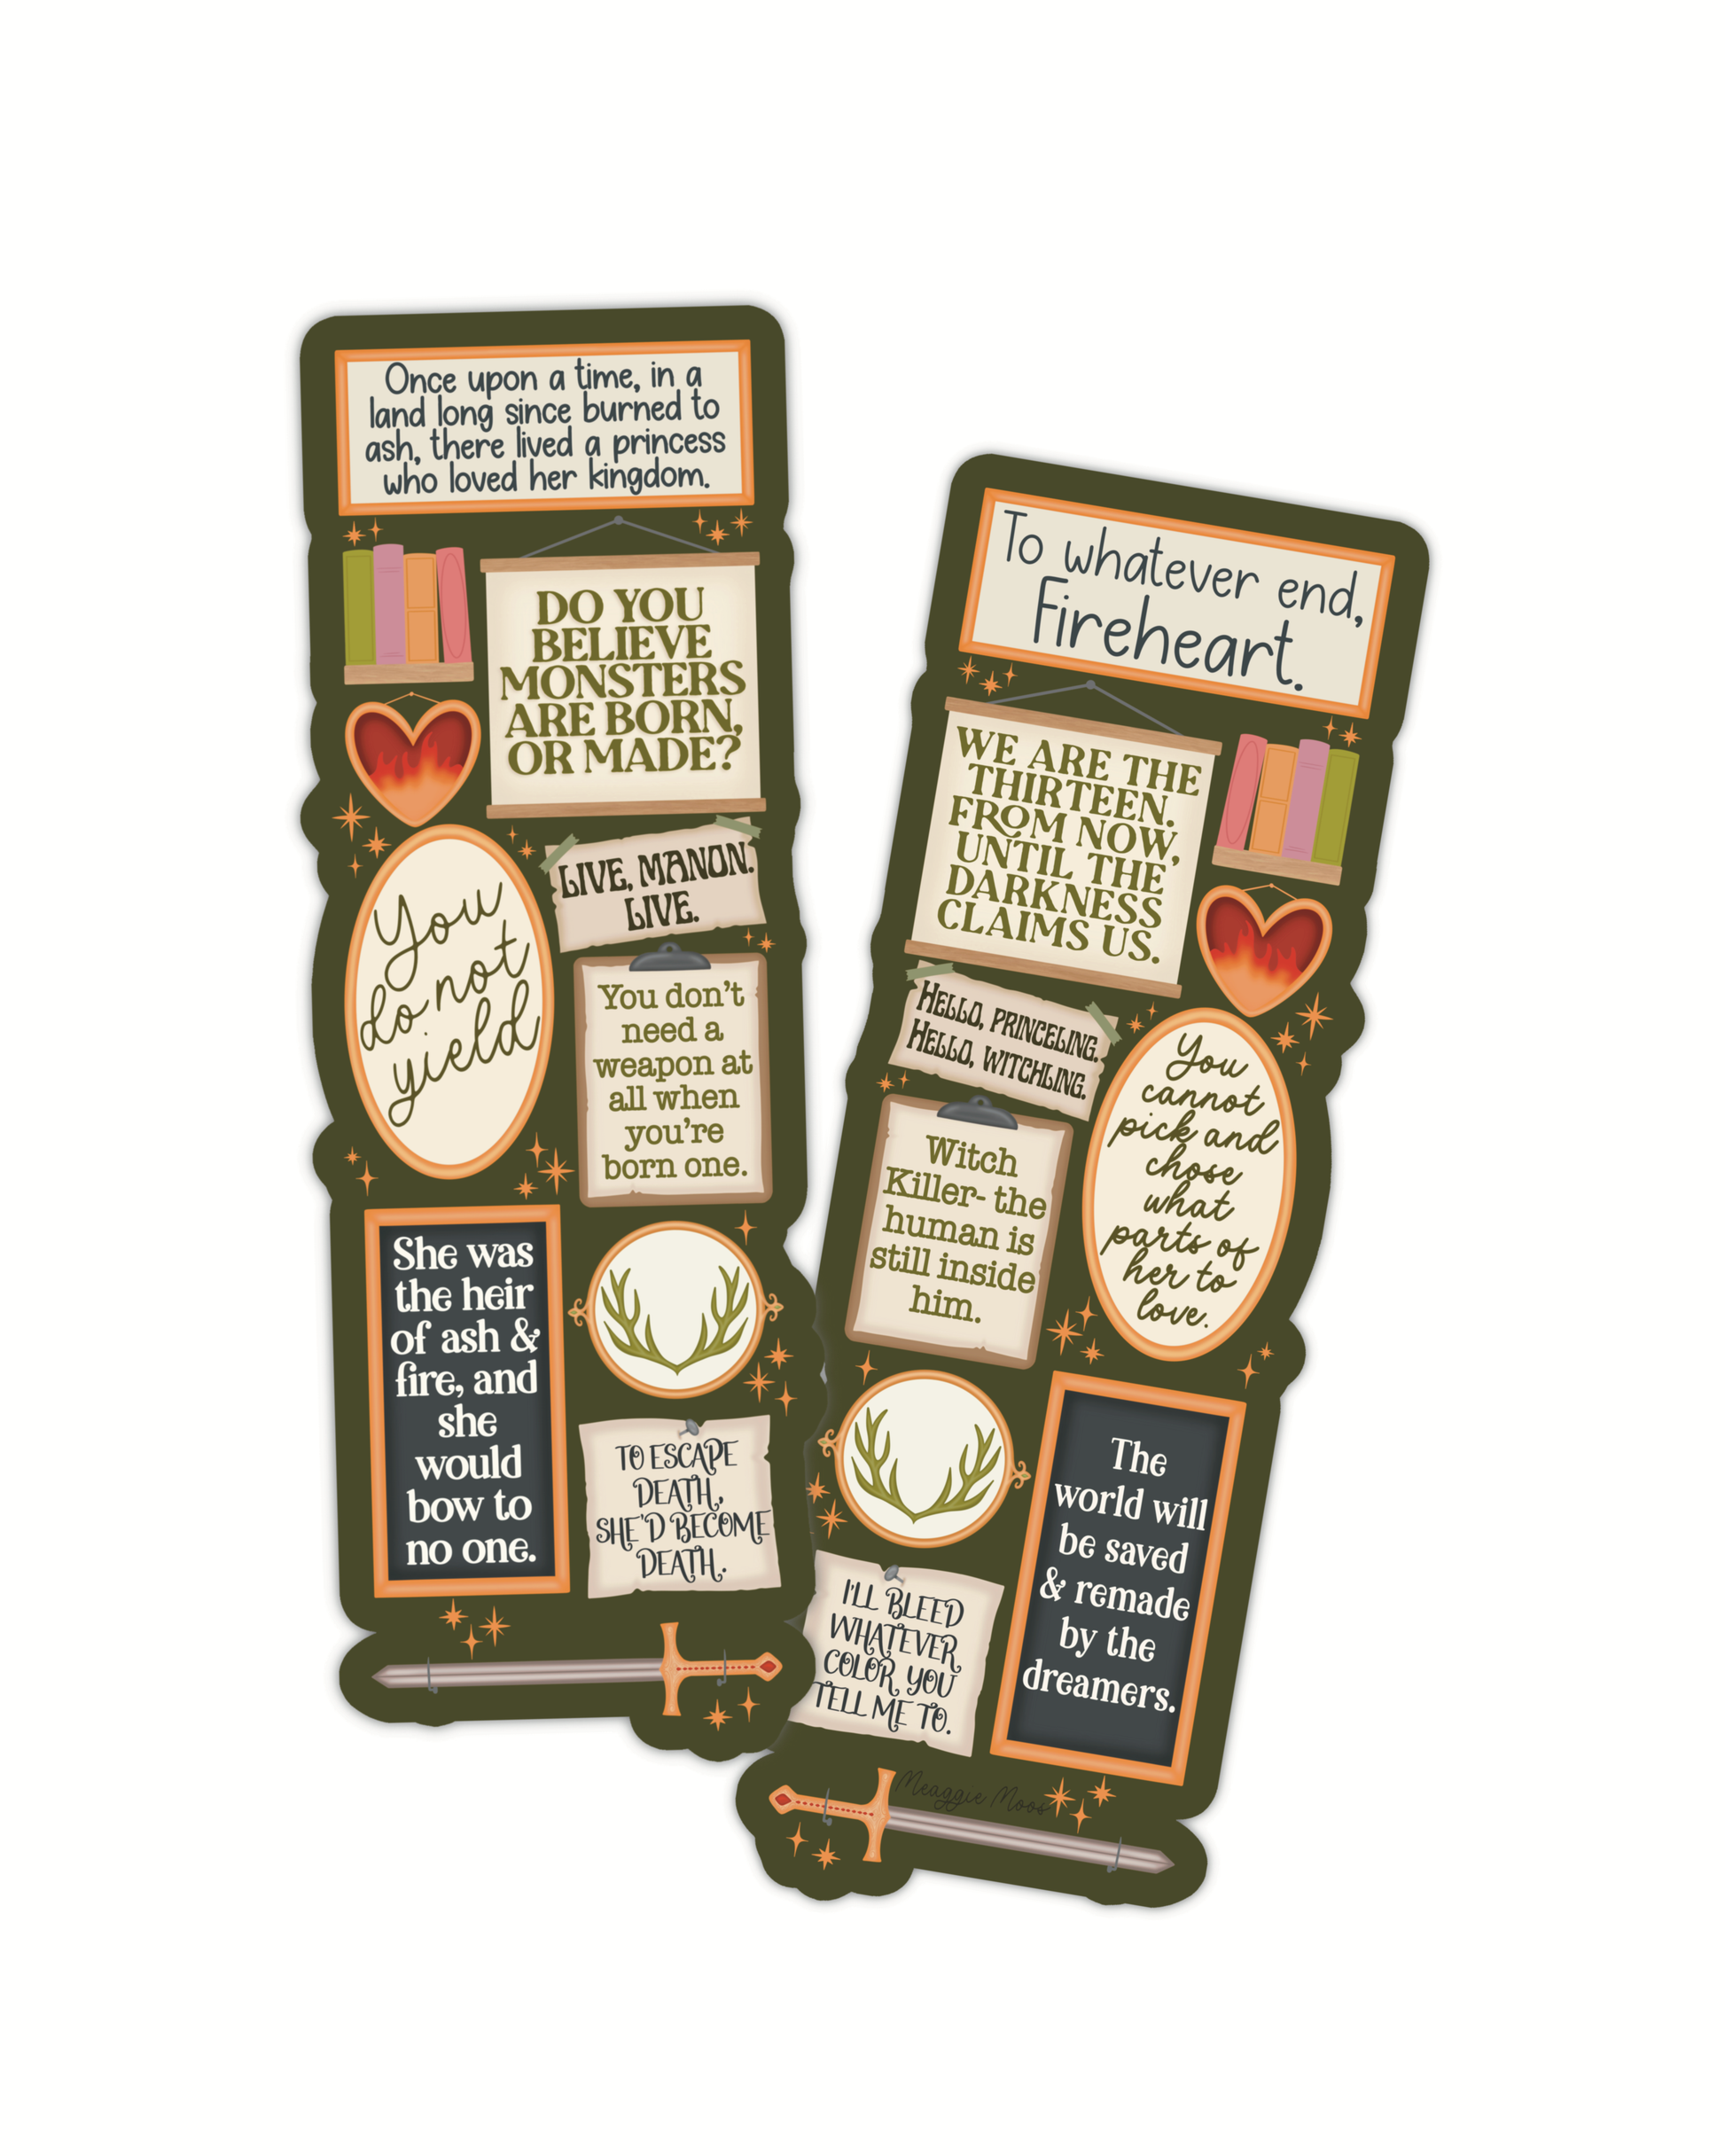 Once upon a time, in a
land long since burned to
ash, there lived a princess
who loved her kingdom.
DO YOU
BELIEVE
MONSTERS
ARE BORN,
OR MADE?
LIVE, MANON.
LIVE.
You
do not
yield
You don't
need a
weapon at
all when
you're
born one.
She was
the heir
of ash &
fire, and
she
would
bow to
no one.
TO ESCAPE
DEATH,
SHE'D BECOME
DEATH.
To whatever end,
Fireheart.
WE ARE THE
THIRTEEN.
FROM NOW,
UNTIL THE
DARKNESS
CLAIMS US.
HELLO, PRINCELING.
HELLO, WITCHLING.
You
cannot
pick and
chose
what
parts of
her to
love.
Witch
Killer- the
human is
still inside
him.
The
world will
be saved
& remade
by the
dreamers.
I'LL BLEED
WHATEVER
COLOR YOU
TELL ME TO.
Meaggie Moos